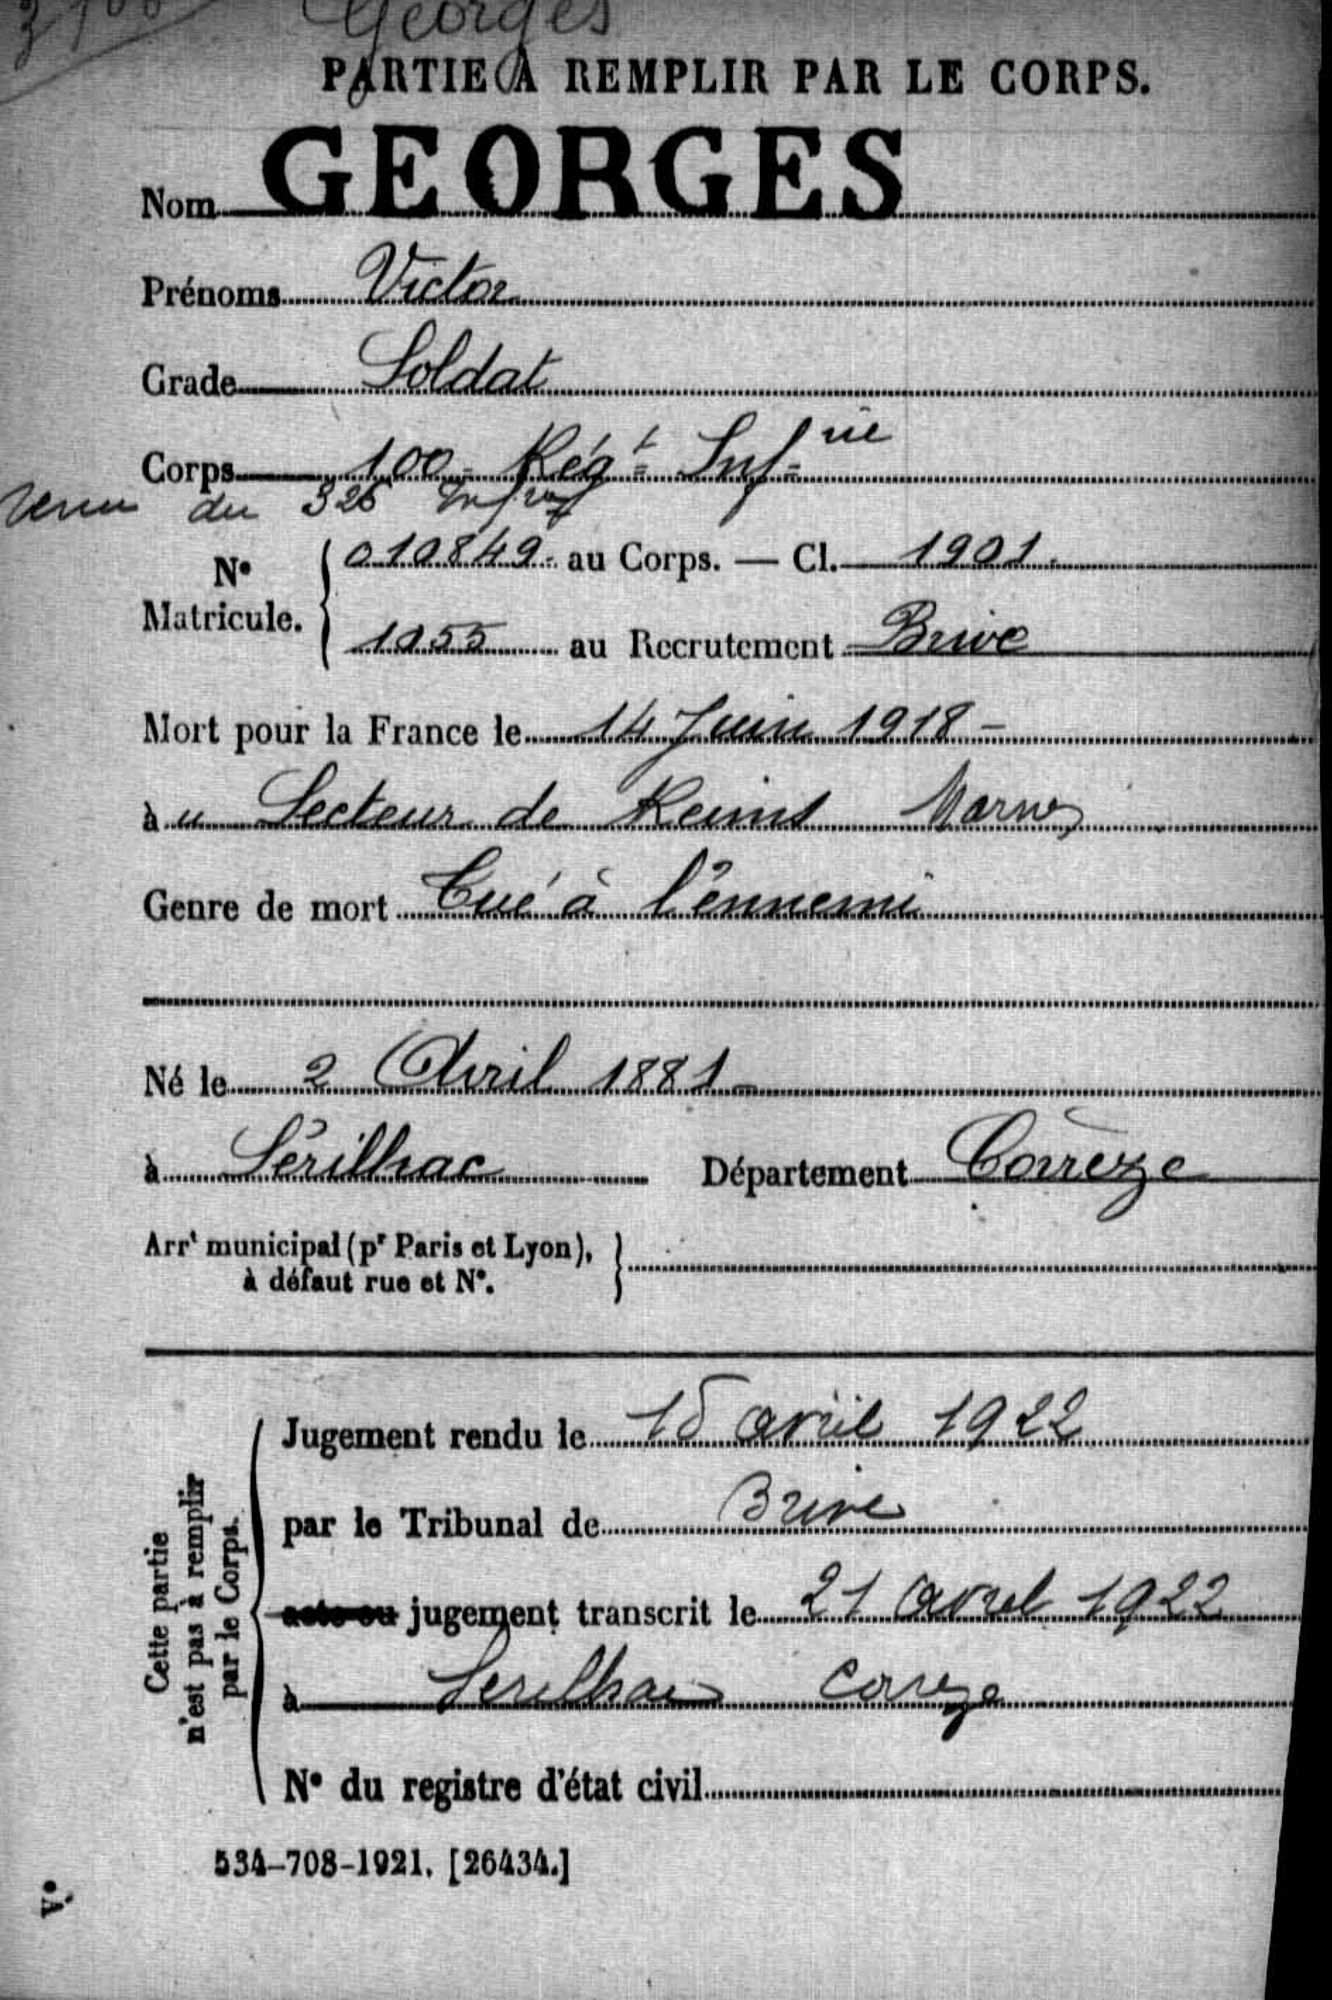 Georges
PARTIE À REMPLIR PAR LE CORPS.
Nom GEORGES
Prénoms Victor
Grade Soldat
Corps 100e Régt Infrie
Venu du 326 Infrie
No Matricule. { 010849. au Corps. — Cl. 1901.
1055 au Recrutement Brive
Mort pour la France le 14 Juin 1918 –
à u Secteur de Reims Marne
Genre de mort Tué à l'ennemi
Né le 2 Avril 1881 –
à Sérilhac Département Corrèze
Arrt municipal (pr Paris et Lyon), }
à défaut rue et No.
Cette partie
n'est pas à remplir
par le Corps.
Jugement rendu le 15 avril 1922
par le Tribunal de Brive
acte ou jugement transcrit le 21 avril 1922
à Serilhac Correze
No du registre d'état civil
534-708-1921. [26434.]